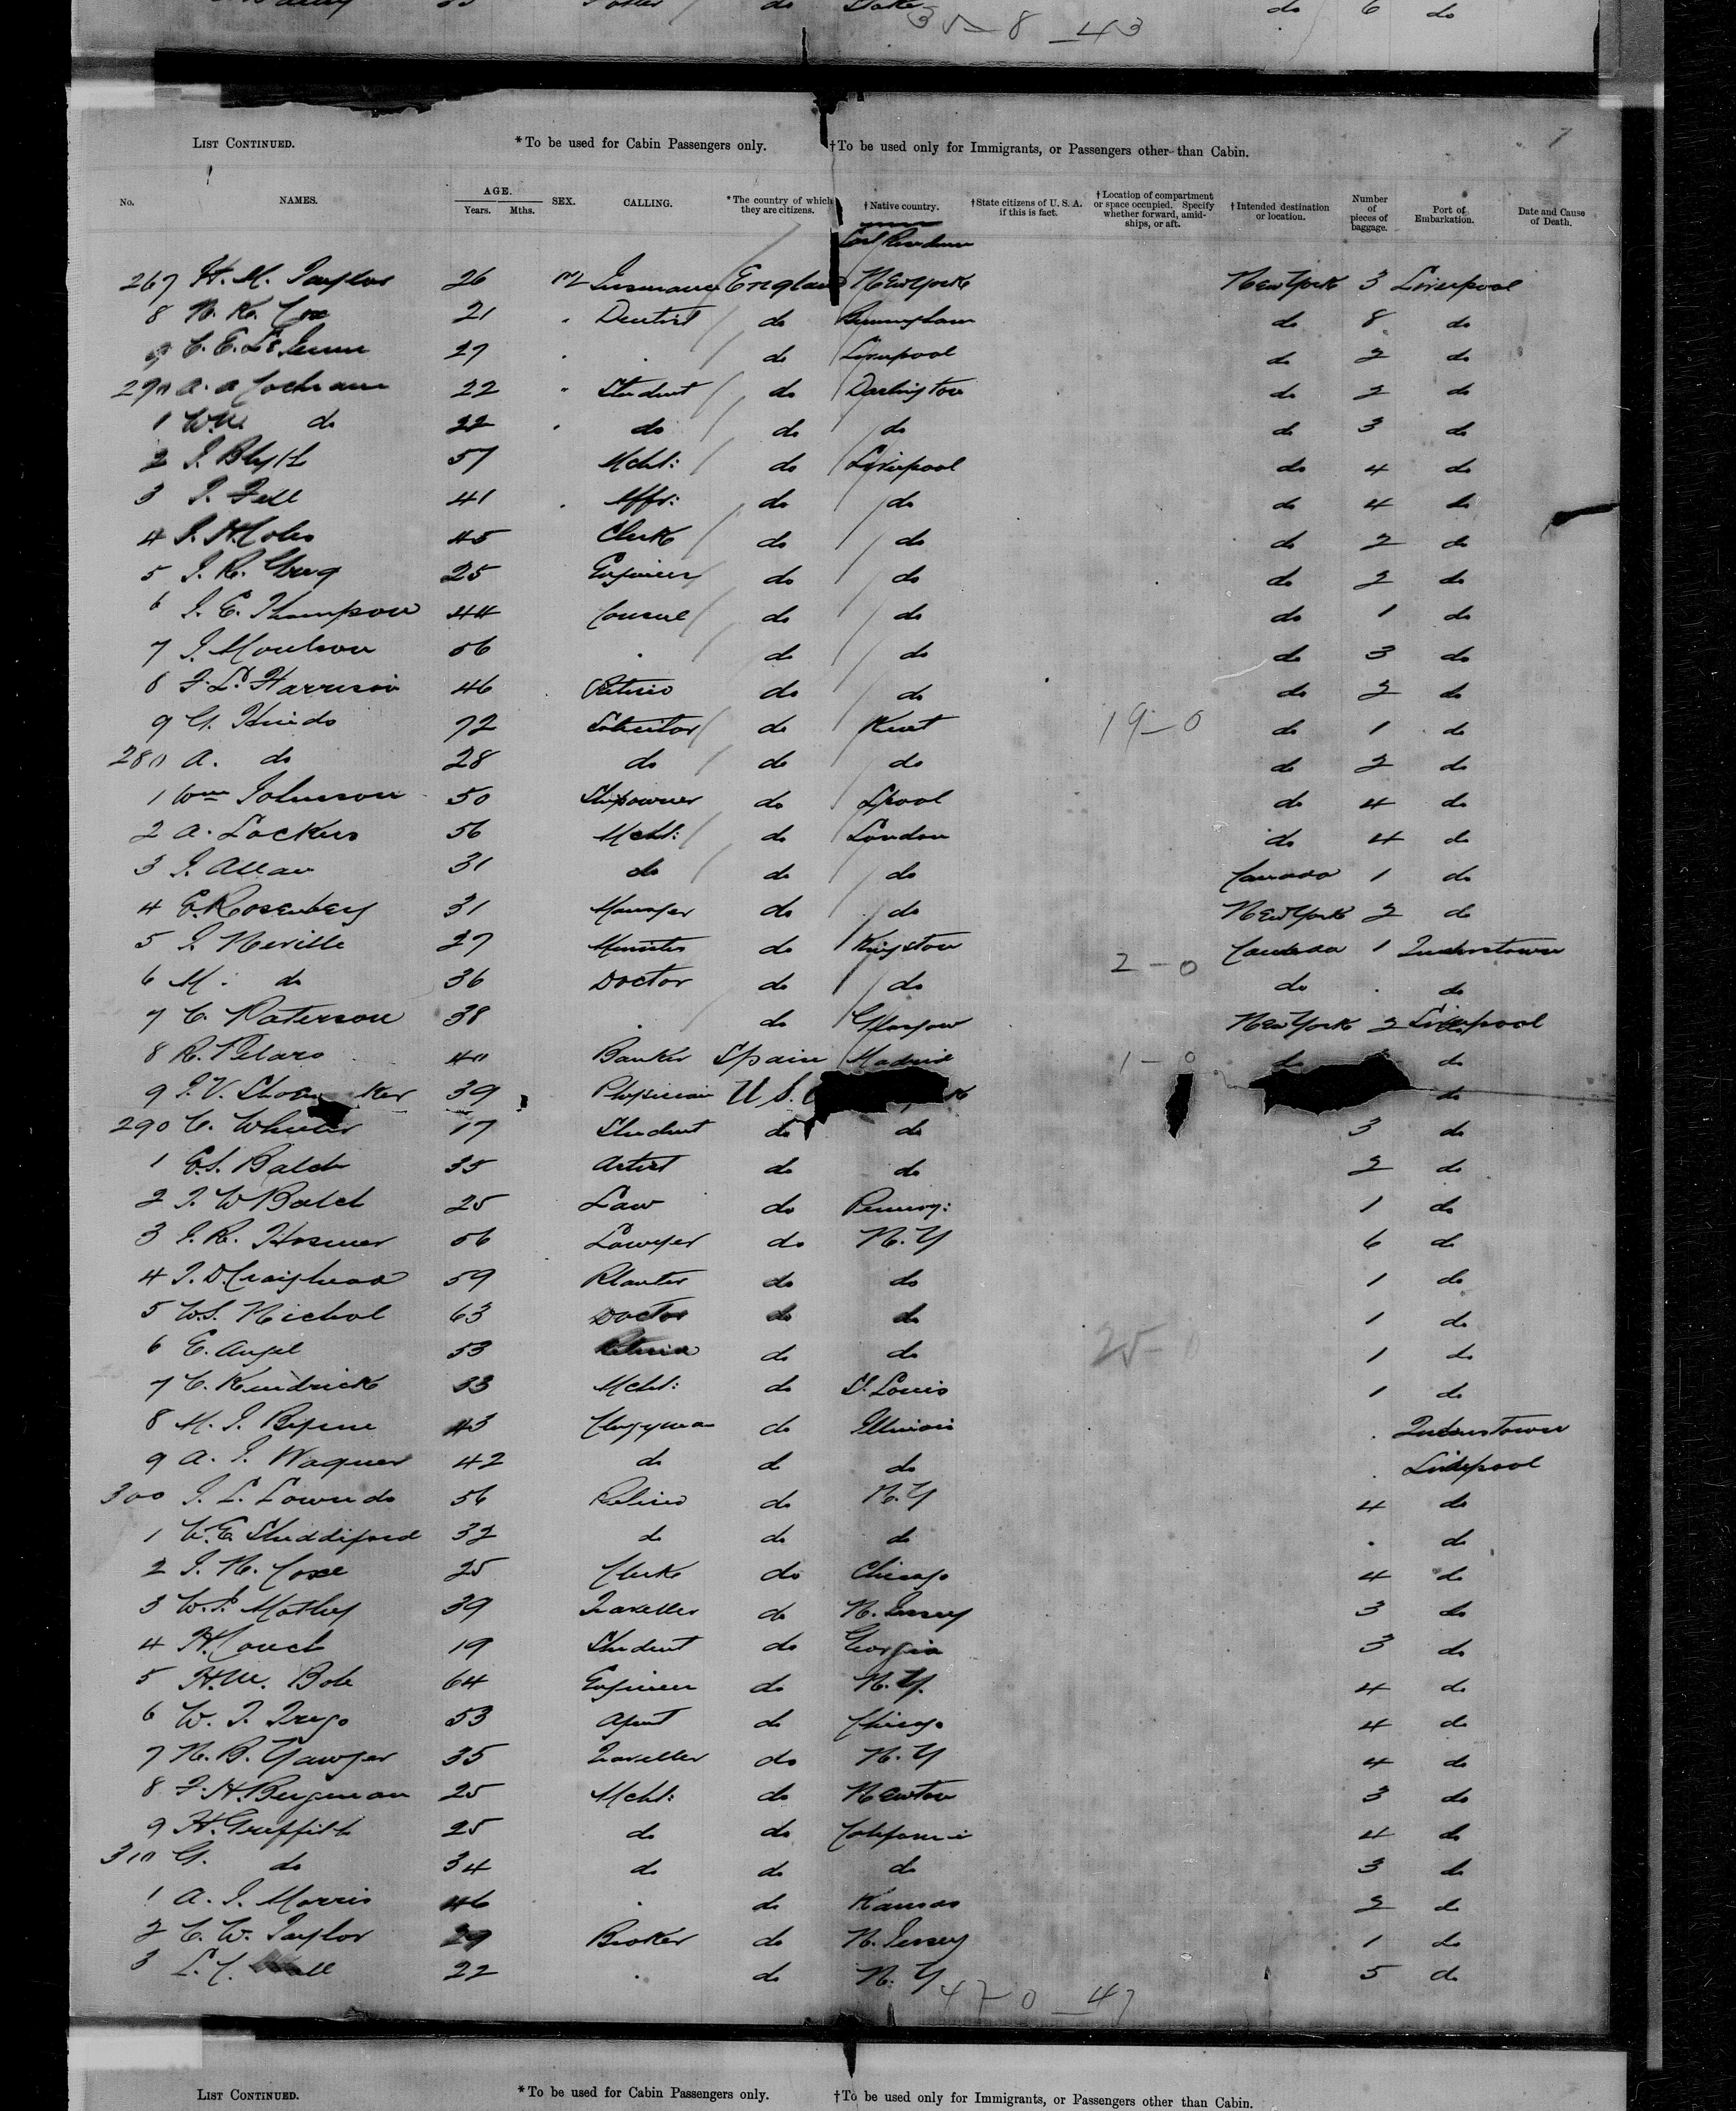 do 6 do
35 - 8 - 43
7
LIST CONTINUED. *To be used for Cabin Passengers only. †To be used only for Immigrants, or Passengers other than Cabin.
No. NAMES. AGE. Years. Mths. SEX. CALLING. *The country of which they are citizens. †Native country. †State citizens of U. S. A. if this is fact. †Location of compartment or space occupied. Specify whether forward, amidships, or aft. †Intended destination or location. Number of pieces of baggage. Port of Embarkation. Date and Cause of Death.
267 H. M. Taylor 26 m Insurance England New York New York 3 Liverpool
8 N. K. Cox 21 " Dentist do Birmingham do 8 do
9 C. E. 27 " " do Liverpool do 2 do
290 A. A Cochrane 22 " Student do Darlington do 2 do
1 Wm do 22 " do do do do 3 do
2 J. Blyth 57 Mcht: do Liverpool do 4 do
3 J. Fell 41 " Mffr: do do do 4 do
4 J. H. Coles 45 Clerk do do do 2 do
5 J. R. 25 Engineer do do do 2 do
6 J. E. Thompson 44 Consul do do do 1 do
7 J. Moulson 56 " do do do 3 do
8 F. Ld. Harrison 46 Retired do do do 2 do
9 G. Hinds 72 Solicitor do Kent 19-0 do 1 do
280 A. do 28 do do do do 2 do
1 Wm Johnson 50 Shipowner do Lpool do 4 do
2 A. Lockers 56 Mcht: do London do 4 do
3 J. Allan 31 do do do Canada 1 do
4 E. Rosenberg 31 Manager do do New York 2 do
5 J. Neville 27 Minister do Kingston Canada 1 Queenstown
6 M. do 36 Doctor do do 2-0 do . do
7 C. Paterson 38 " do Glasgow New York 2 Liverpool
8 R. Pelaro 40 Banker Spain Madrid 1-0 do do
9 J. V. Shoemaker 39 Physician U S. do
290 C. Wheeler 17 Student do do 3 do
1 E. S. Balch 35 Artist do do 2 do
2 T. W Balch 25 Law do Pennsy: 1 do
3 J. R. Hosmer 56 Lawyer do N. Y 6 do
4 J. D. Craighead 59 Planter do do 1 do
5 W. S. Nichol 63 Doctor do do 1 do
6 E. Angel 53 Retired do do 25-0 1 do
7 C. Kendrick 33 Mcht: do St. Louis 1 do
8 M. J. Byrne 43 Clergyman do Illinois . Queenstown
9 A. J. Wagner 42 do d do . Liverpool
300 J. L. Lownds 56 Retired do N. Y 4 do
1 W. E. Studdiford 32 do do do . do
2 J. N. Coxe 25 Clerk do Chicago 4 do
3 W. P. Mathey 39 Traveller do N. Jersey 3 do
4 H. Couch 19 Student do Georgia 3 do
5 H. M. Bole 64 Engineer do N. Y. 4 do
6 W. T. Trego 53 Agent do Chicago 4 do
7 N. B. Yawger 35 Traveller do N. Y 4 do
8 F. H. Bergman 25 Mcht: do Newton 3 do
9 H. Griffith 25 do do Californi 4 do
310 G. do 34 do do do 3 do
1 A. J. Morris 46 " do Kansas 2 do
2 C. W. Taylor 29 Broker do N. Jersey 1 do
3 L. C. 22 " do N. Y 5 do
47-0-47
LIST CONTINUED. *To be used for Cabin Passengers only. †To be used only for Immigrants, or Passengers other than Cabin.